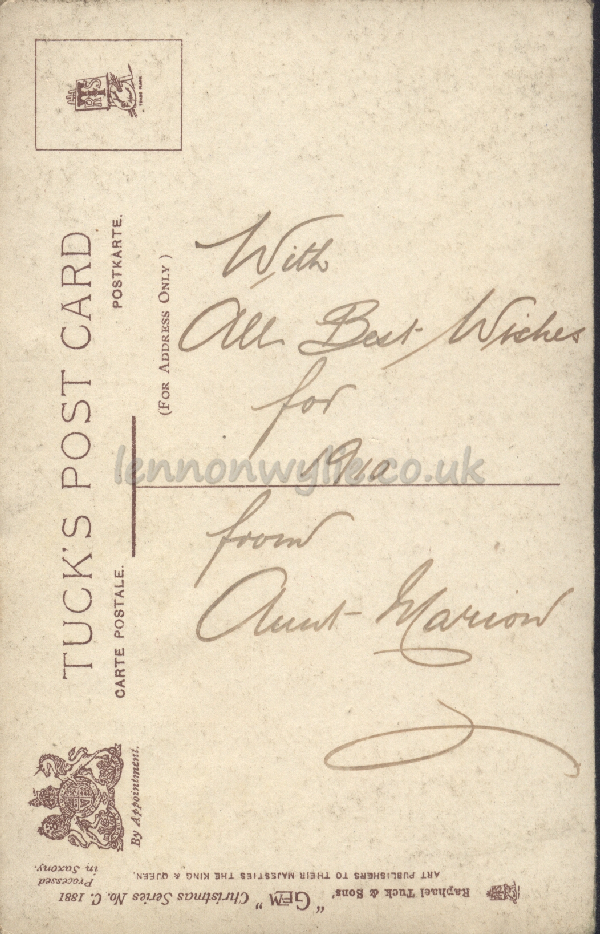 TUCK'S POST CARD
CARTE POSTALE. POSTKARTE.
(FOR ADDRESS ONLY)
With
All Best Wishes
for
1910
from
Aunt Marion
lennonwylie.co.uk
By Appointment.
Raphael Tuck & Sons' "GEM" Christmas Series No. C. 1881
ART PUBLISHERS TO THEIR MAJESTIES THE KING & QUEEN.
Processed
in Saxony.
TRADE MARK